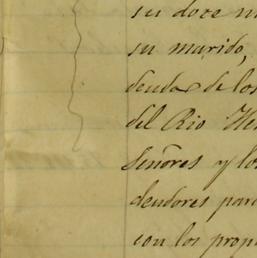 su doce
su marido,
deuda de los
del Rio
Señores y los
deudores para
con los